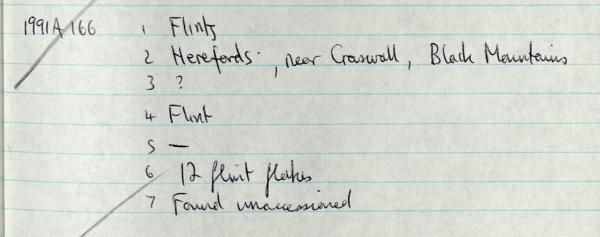 1991A 166 1 Flints
2 Herefords. , near Craswall, Black Mountains
3 ?
4 Flint
5 —
6 12 flint flakes
7 Found unaccessioned